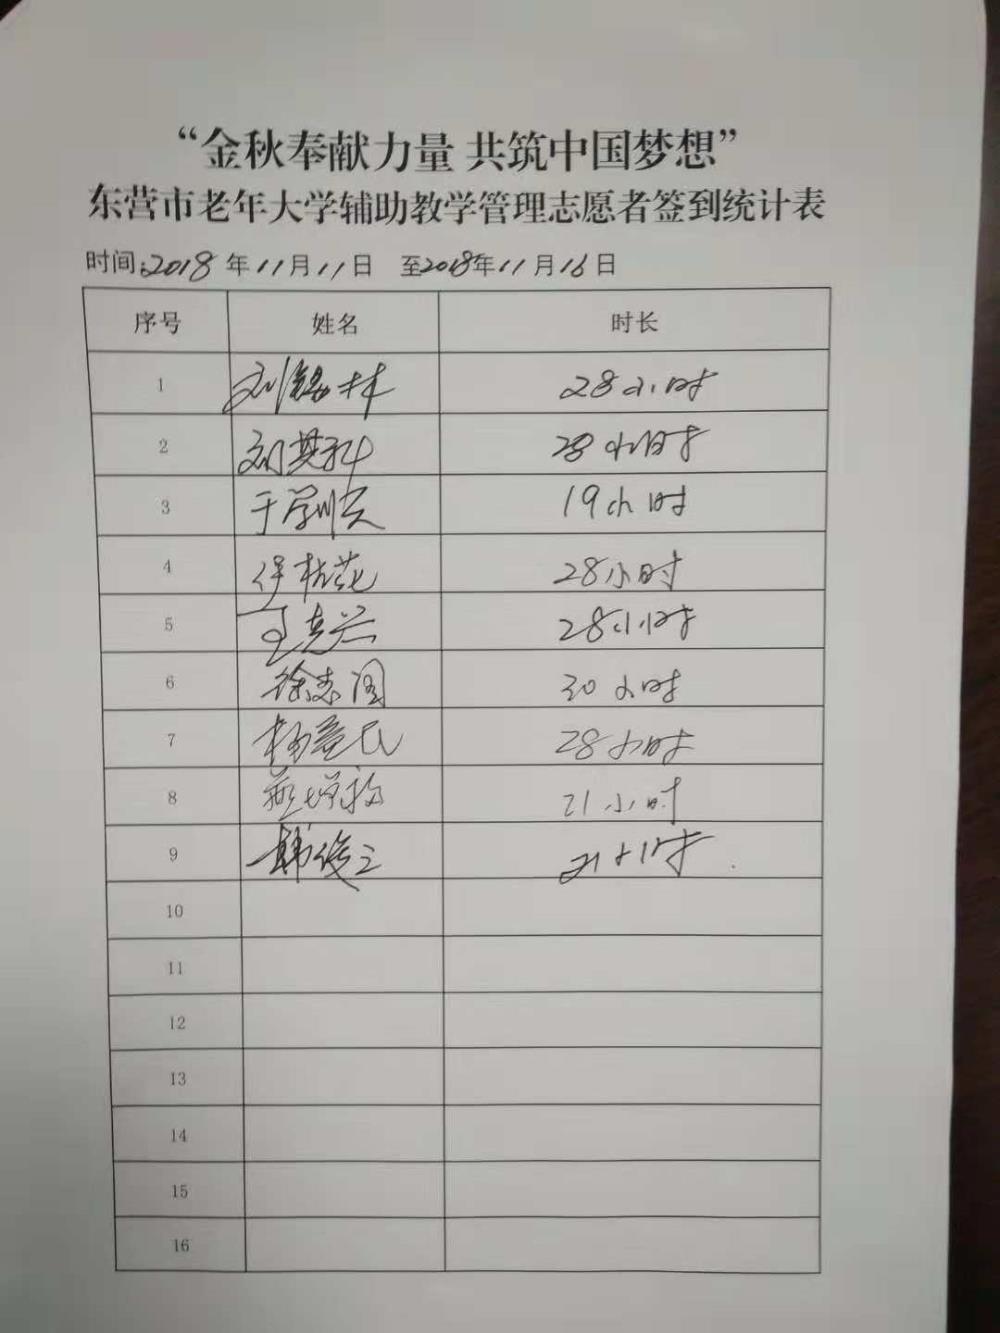 “金秋奉献力量 共筑中国梦想”
东营市老年大学辅助教学管理志愿者签到统计表
时间:2018年11月11日 至2018年11月16日
序号 姓名 时长
1 刘锡林 28小时
2 刘英科 28小时
3 于学顺 19小时
4 桂花 28小时
5 王志兴 28小时
6 徐志国 30小时
7 杨益民 28小时
8 21小时
9 韩俊三 21小时
10
11
12
13
14
15
16